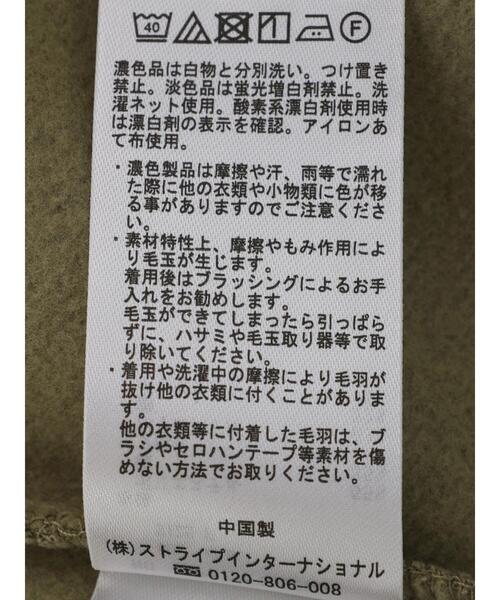 40 F
濃色品は白物と分別洗い。つけ置き
禁止。淡色品は蛍光増白剤禁止。洗
濯ネット使用。酸素系漂白剤使用時
は漂白剤の表示を確認。アイロンあ
て布使用。
・濃色製品は摩擦や汗、雨等で濡れ
た際に他の衣類や小物類に色が移
る事がありますのでご注意くださ
い。
・素材特性上、摩擦やもみ作用によ
り毛玉が生じます。
着用後はブラッシングによるお手
入れをお勧めします。
毛玉ができてしまったら引っぱら
ずに、ハサミや毛玉取り器等で取
り除いてください。
・着用や洗濯中の摩擦により毛羽が
抜け他の衣類に付くことがありま
す。
他の衣類等に付着した毛羽は、ブ
ラシやセロハンテープ等素材を傷
めない方法でお取りください。
中国製
(株)ストライプインターナショナル
0120-806-008